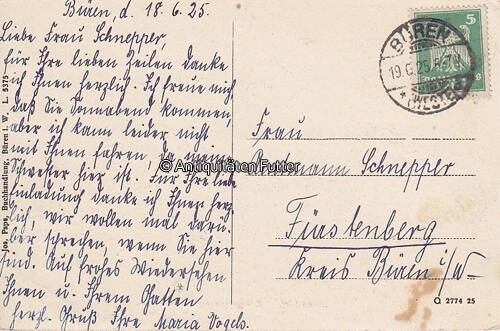 Büren, d. 18.6.25.
Liebe Frau Schnepper,
für Ihre lieben Zeilen danke
ich Ihnen herzlich. Ich freue mich,
daß Sie Sonnabend kommen,
aber ich kann leider nicht
mit Ihnen fahren, da meine
Schwester hier ist. Für Ihre liebe
Einladung danke ich Ihnen herz-
lich, wir wollen mal darü-
ber sprechen, wenn Sie hier
sind. Auf frohes Wiedersehen
Ihnen u. Ihrem Gatten
herzl. Gruß Ihre Maria Vogels.
Jos. Pape, Buchhandlung, Büren i. W., L. 5375
© Antiquitäten Futter
BÜREN
19.6.25.
(WESTF.)
5
Frau
Schnepper
Fürstenberg
Kreis Büren i/W.
Q 2774 25